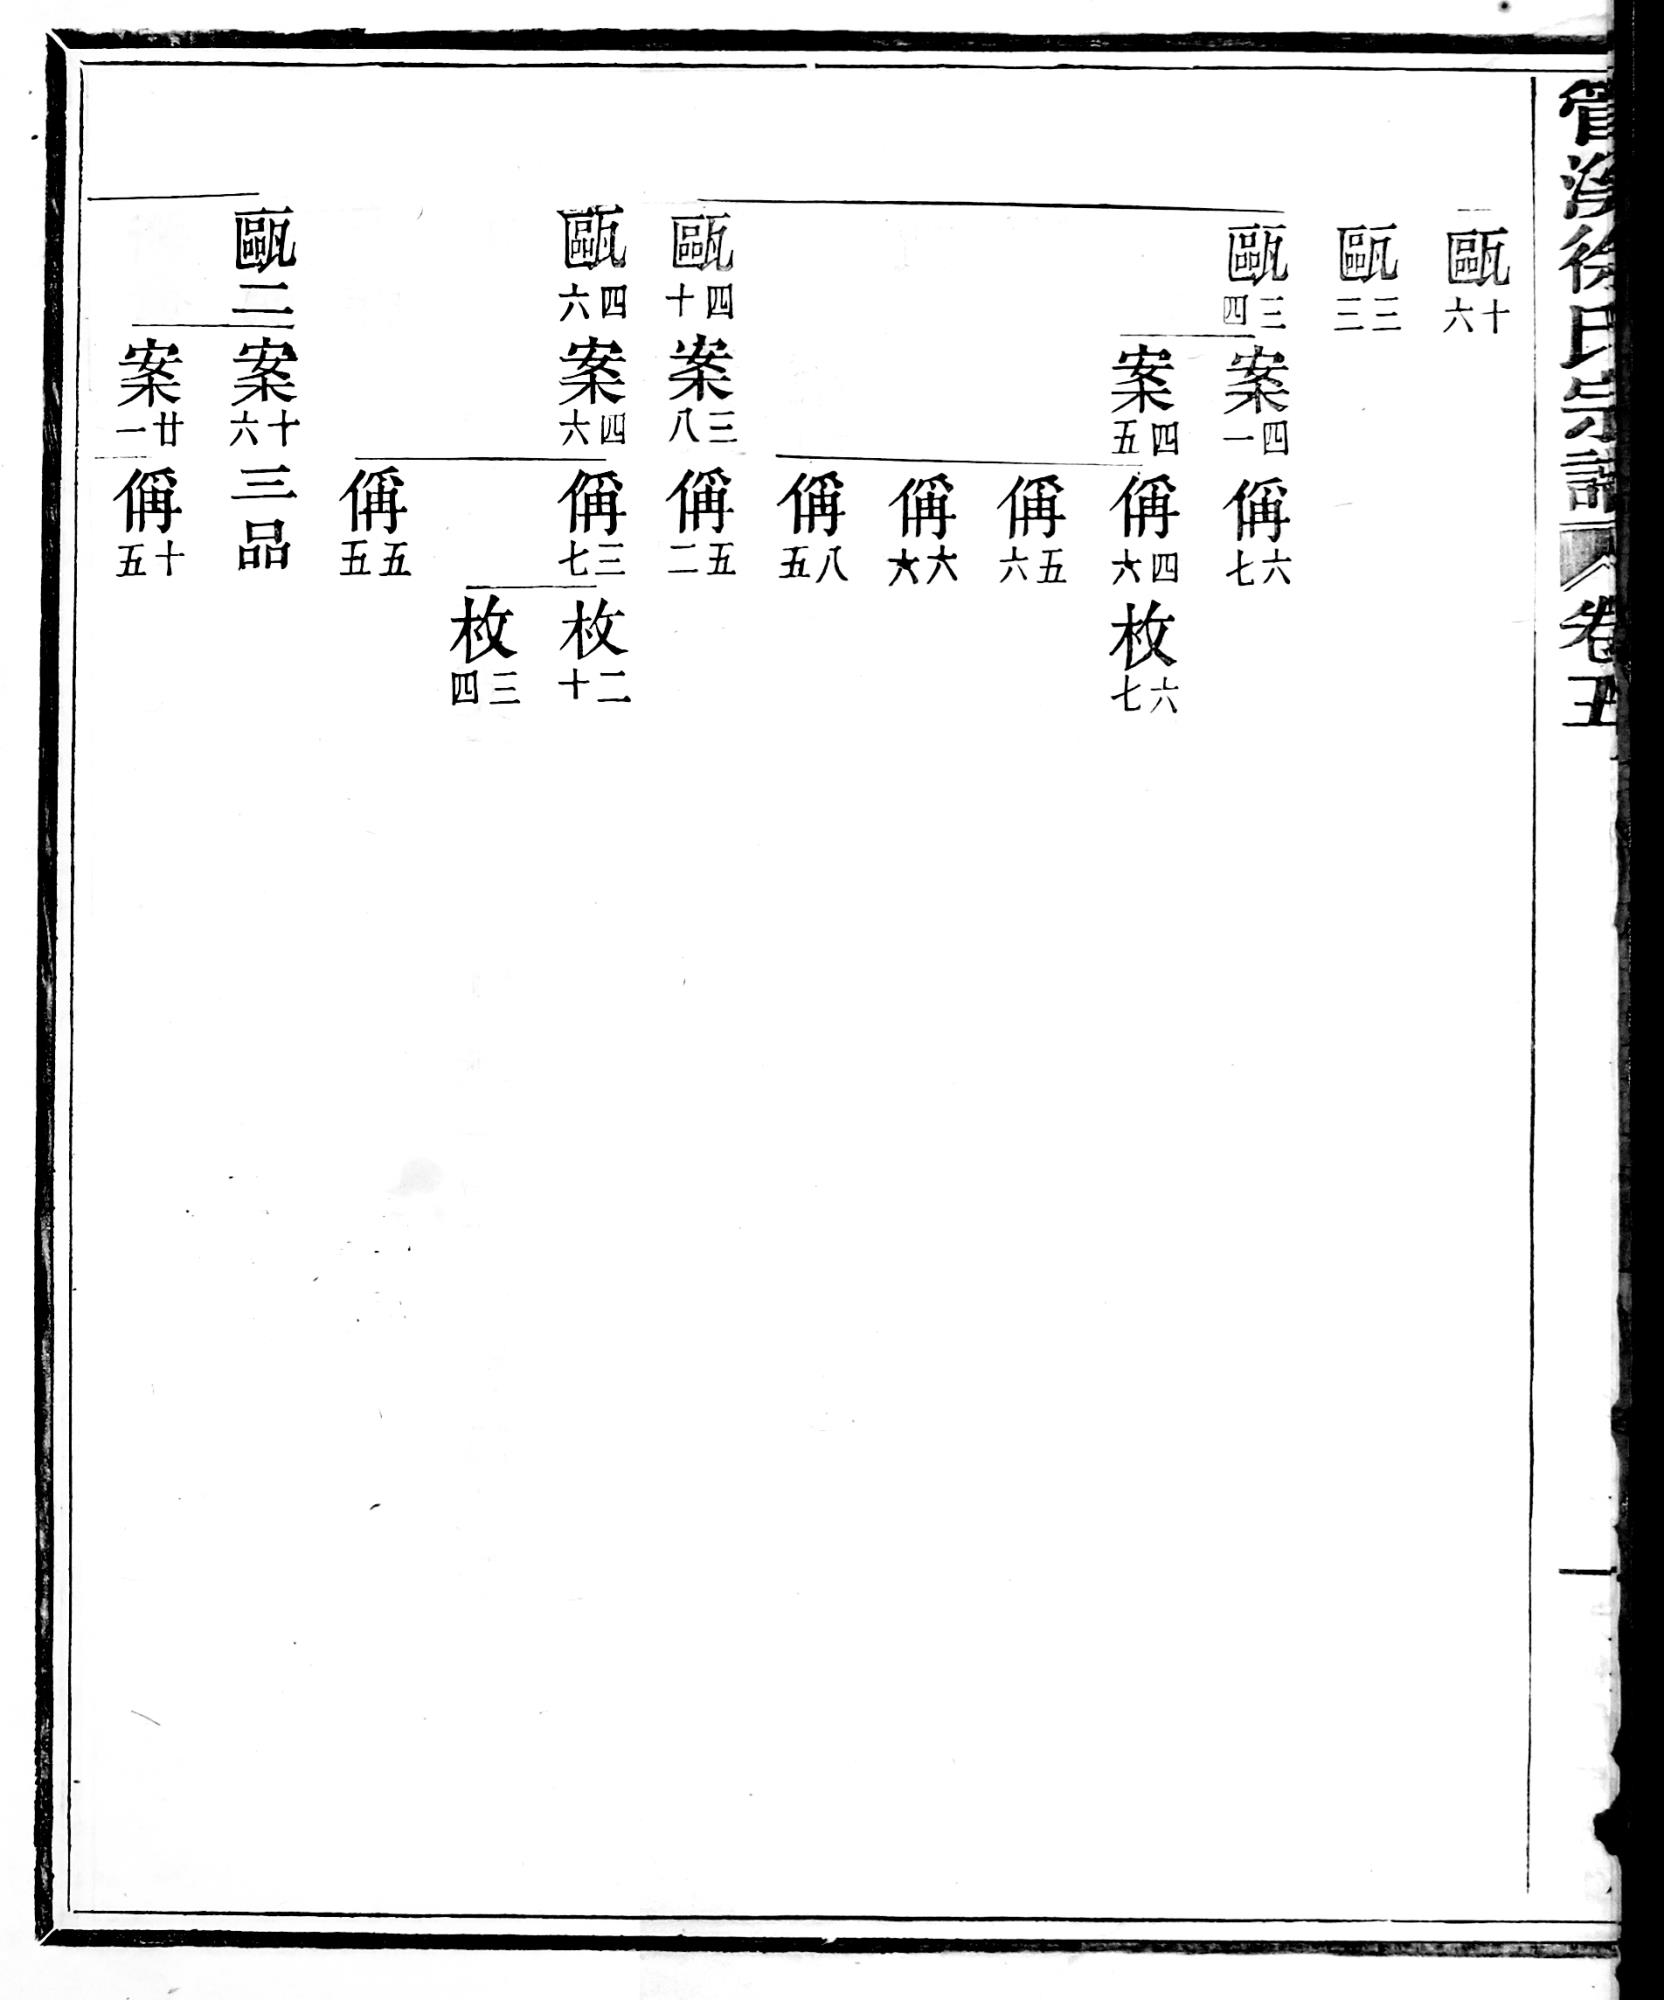 管溪徐氏宗譜 卷五 一
甌十六
甌三三
甌三四 案四一 偁六七
案四五 偁四六 枚六七
偁五六
偁六六
偁八五
甌四十 案三八 偁五二
甌四六 案四六 偁三七 枚二十
枚三四
偁五五
甌二 案十六 三品
案廿一 偁十五